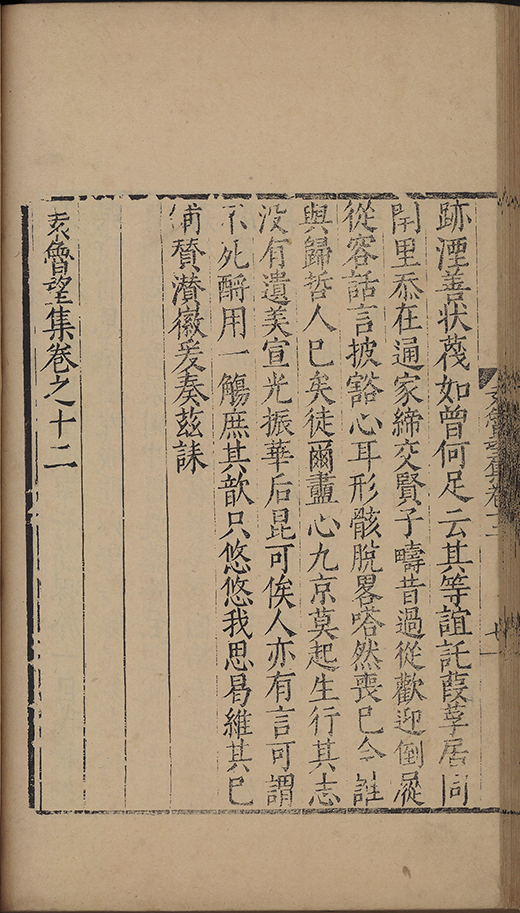 跡湮善状蔑如曾何足云其等誼託葭莩居同
閈里忝在通家締交賢子疇昔過從歡迎倒屣
從容話言披豁心耳形骸脫畧嗒然喪巳今誰
與歸哲人巳矣徒爾盡心九京莫起生行其志
没有遺美宣光振華后昆可俟人亦有言可謂
不死酹用一觴庶其歆只悠悠我思曷維其巳
讚潜徽爰奏茲誄
袁魯望集卷之十二